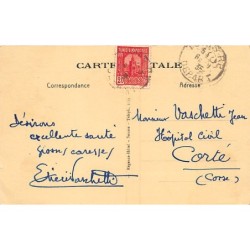 CARTE POSTALE
Correspondance
Adresse
Désirons
excellente santé
grosses caresses
Monsieur Vaschetti Jean
Hôpital Civil
Corte
(Corse)